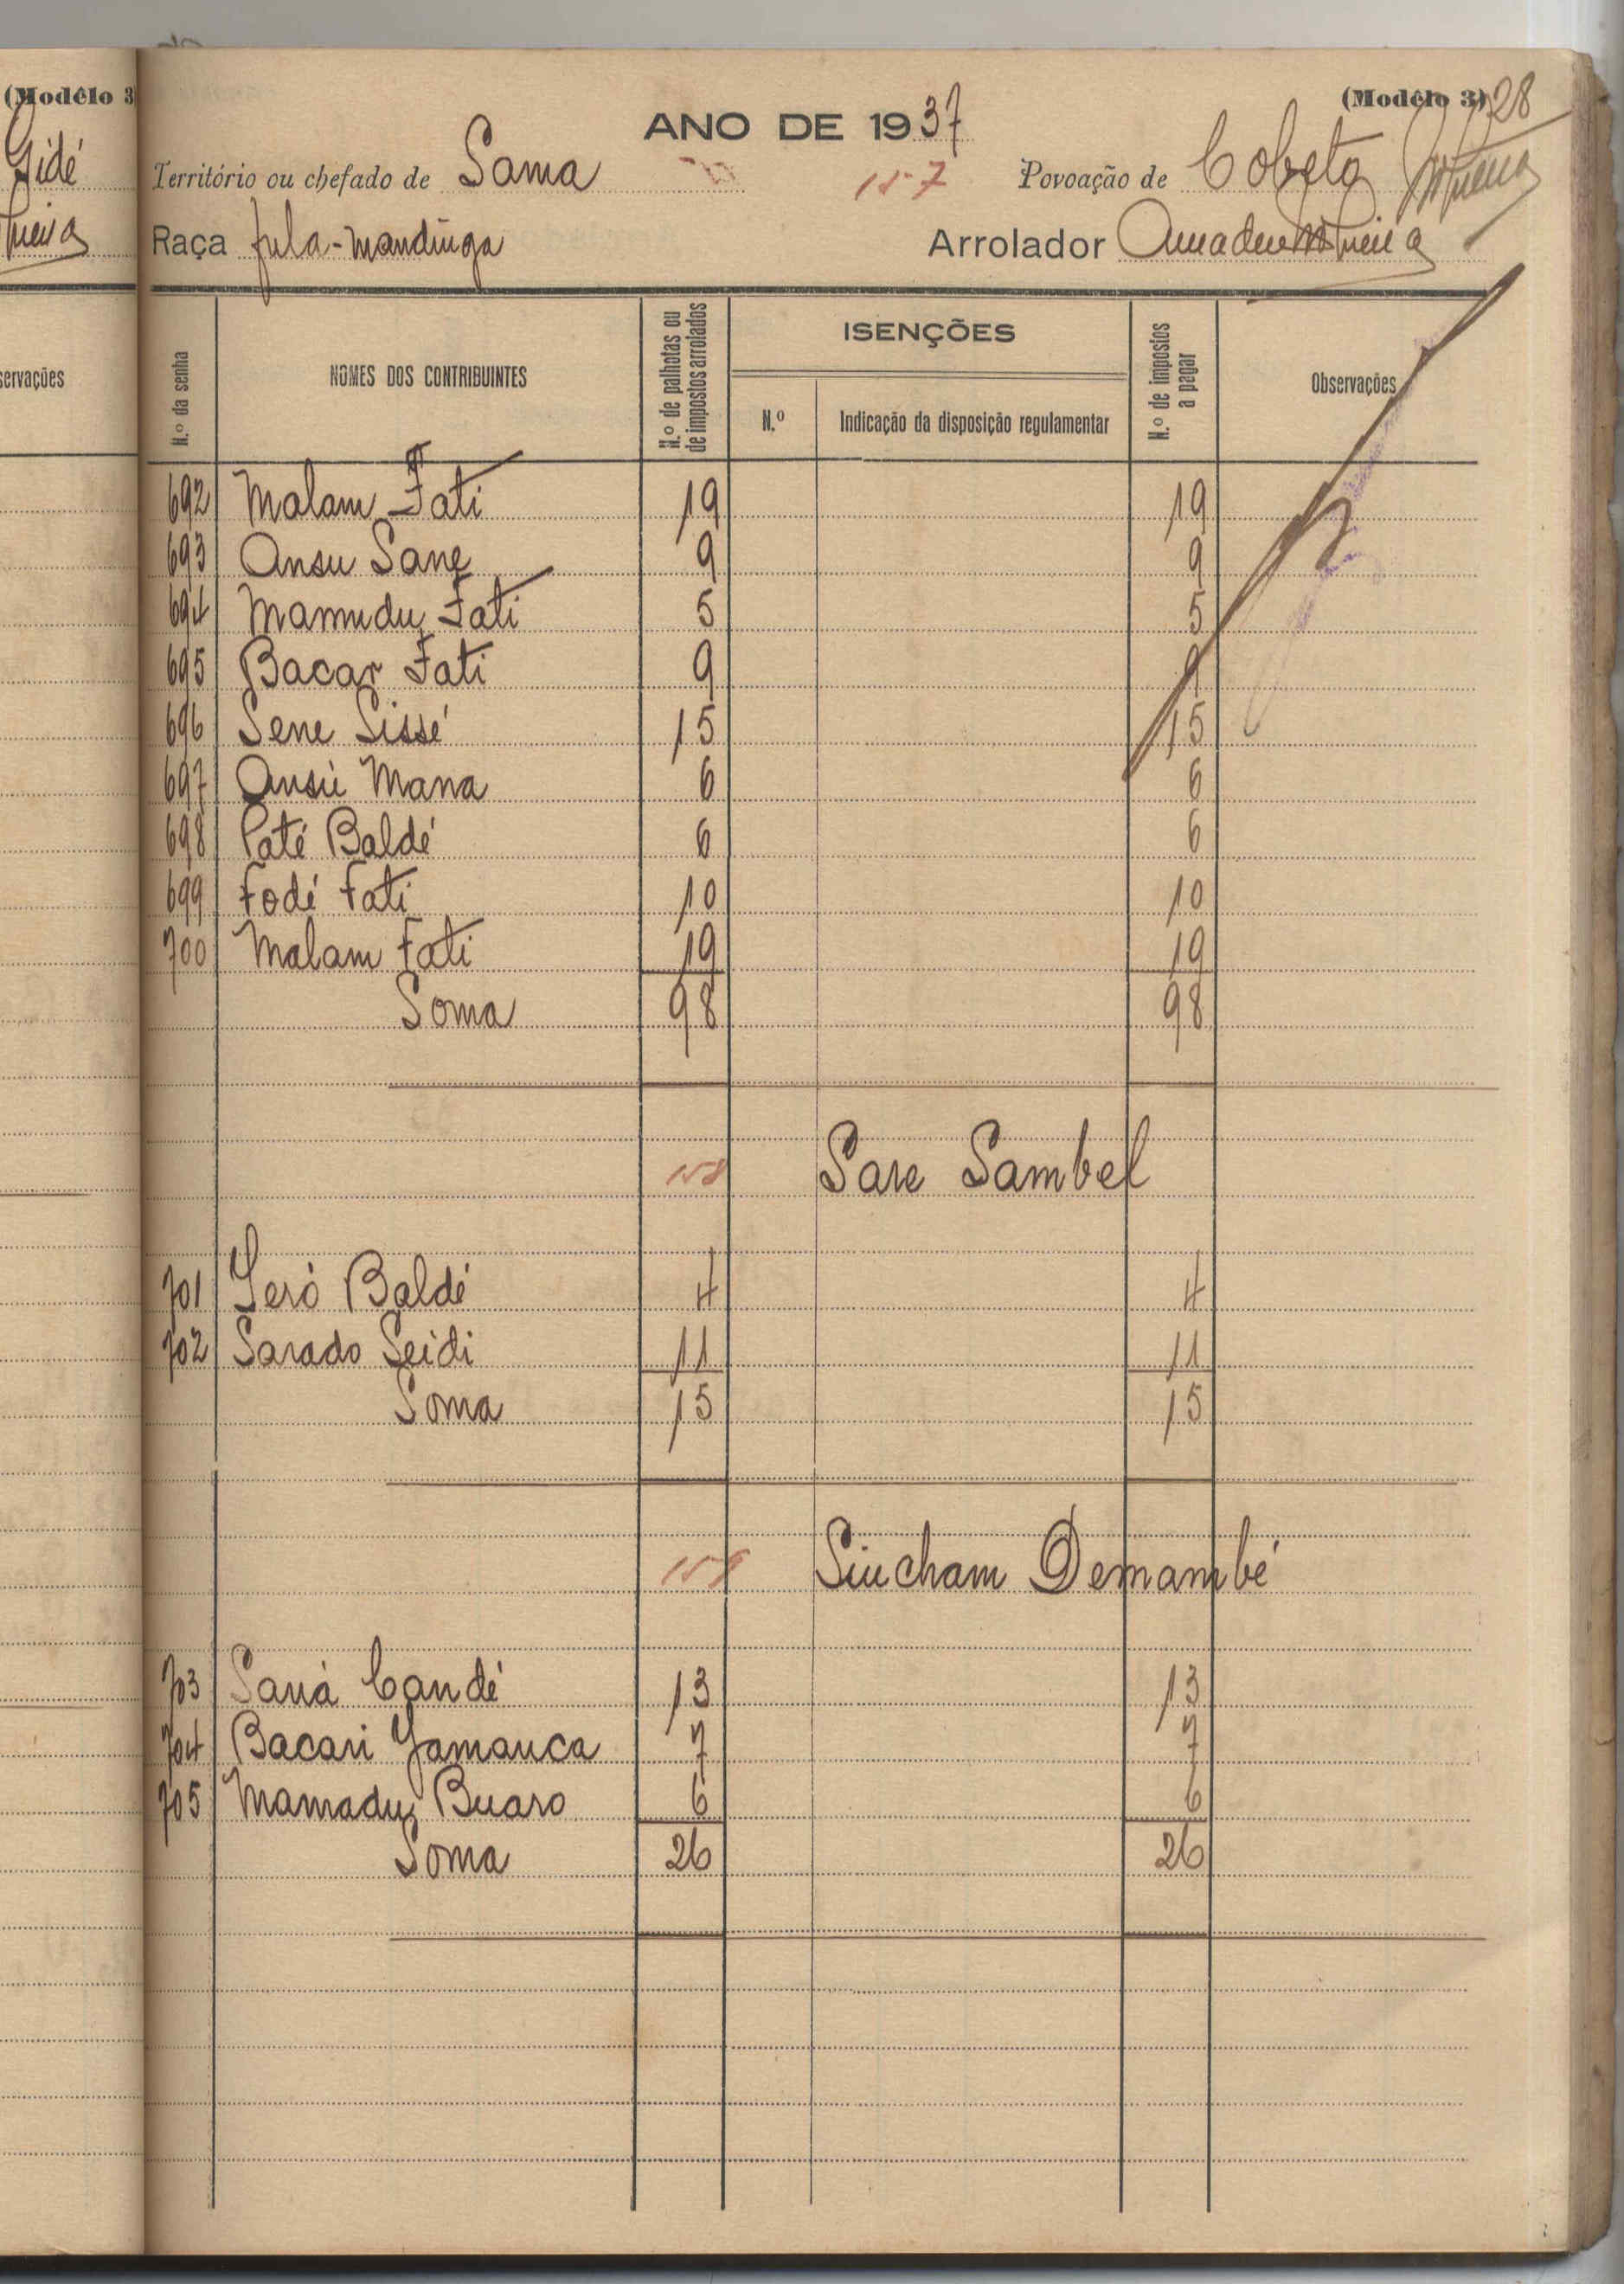 (Modêlo 3
Gidé
servações
(Modêlo 3) 28
ANO DE 1937
Território ou chefado de Sama 157 Povoação de Cobeto
Raça fula-mandinga Arrolador Amadeu
N.º da senha NOMES DOS CONTRIBUINTES N.º de palhotas ou de impostos arrolados ISENÇÕES N.º Indicação da disposição regulamentar N.º de impostos a pagar Observações
692 Malam Fati 19 19
693 Ansu Sane 9 9
694 Mamudu Fati 5 5
695 Bacar Fati 9 9
696 Sene Sissé 15 15
697 Ansú Mana 6 6
698 Paté Baldé 6 6
699 Fodé Fati 10 10
700 Malam Fati 19 19
Soma 98 98
158 Sare Sambel
701 Ieró Baldé 4 4
702 Sarado Seidi 11 11
Soma 15 15
159 Sincham Demambé
703 Saná Candé 13 13
704 Bacari Jamanca 7 7
705 Mamadu Buaro 6 6
Soma 26 26